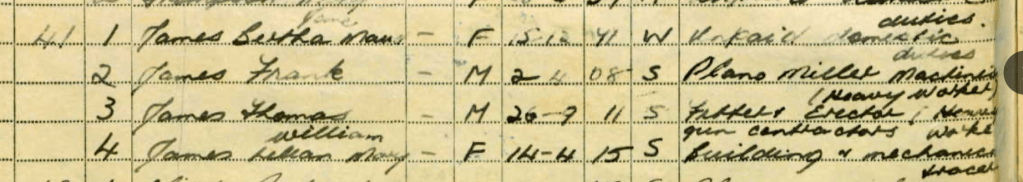 duties.
41 1 James Bertha Maud - F 15-12 71 W Unpaid domestic
duties
2 James Frank - M 2 4 08 S Plano Miller Machinist
(Heavy Worker)
3 James Thomas - M 26-9 11 S Fitter & Erector, Heavy
William gun contractors Worke
4 James Lilian Mary - F 14-4 15 S Building & mechanical
tracer